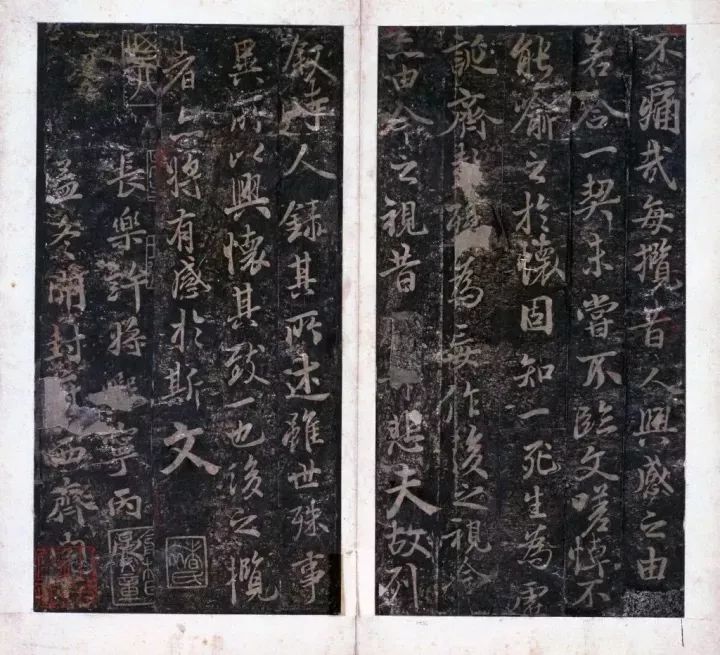 不痛哉每攬昔人興感之由
若合一契未嘗不臨文嗟悼不
能喻之於懷固知一死生為虛
誕齊彭殤為妄作後之視今
亦由今之視昔悲夫故列
叙時人録其所述雖世殊事
異所以興懷其致一也後之攬
者亦將有感於斯文
長樂許將熙寧丙
孟冬開封府西齋